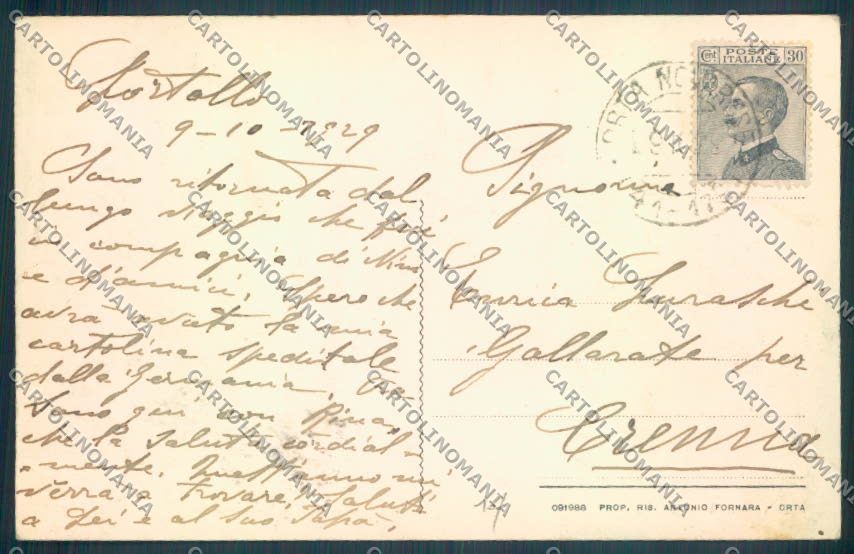 Cortallo
9-10-1929
Sono ritornata dal
lungo viaggio che feci
in compagnia di
e d'amici. Spero che
avrà avuto la mia
cartolina speditale
dalla Germania.
Sono qui con Rina,
che la saluta cordial=
=mente. Quest'anno mi
verrà a trovare. Saluti
a Lei e al suo Papà.
Signorina
Enrica Surasche
Gallarate per
Crenna
Cent 30
POSTE
ITALIANE
ORTA NOVARESE
091988 PROP. RIS. ANTONIO FORNARA - ORTA
CARTOLINOMANIA